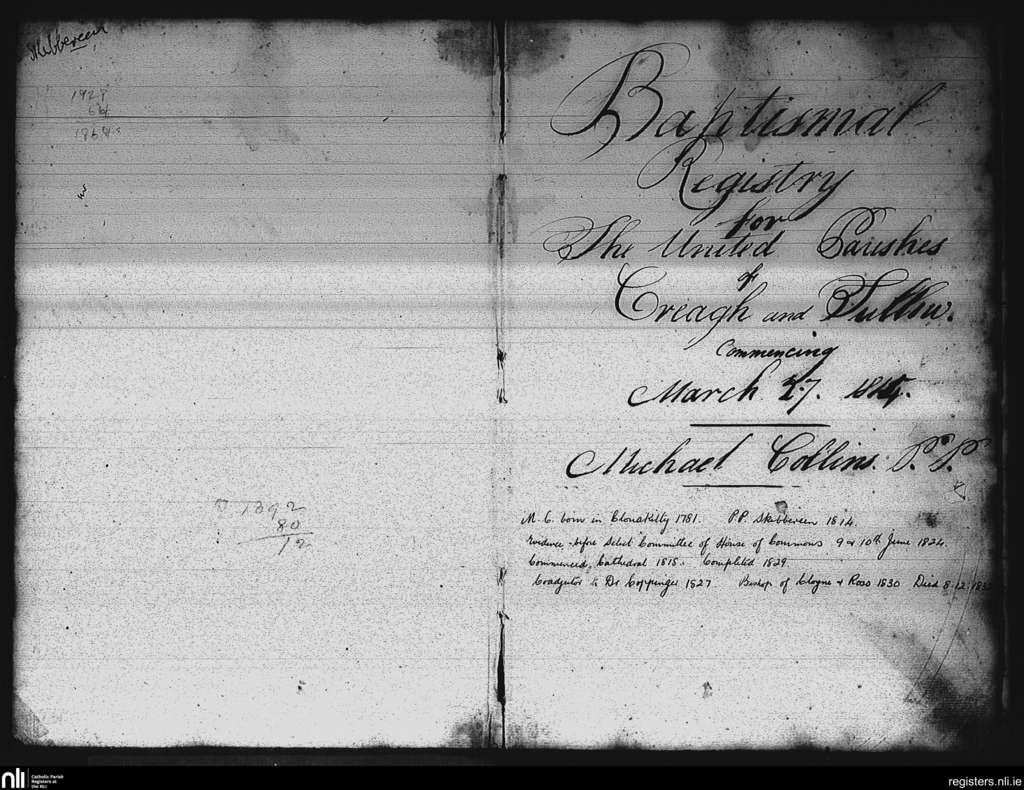 Skibbereen
1928
64
1864
1892
80
12
Baptismal
Registry
for
The United Parishes
of
Creagh and Sullon.
Commencing
March 27. 1814.
Michael Collins. P.P.
M. C. born in Clonakilty 1781. P.P. Skibbereen 1814.
Evidence before Select Committee of House of Commons 9 & 10th June 1824.
Commenced Cathedral 1818. Completed 1829.
Coadjutor to Dr Coppinger 1827 Bishop of Cloyne & Ross 1830 Died 8.12.
nli
Catholic Parish
Registers at
the NLI
registers.nli.ie